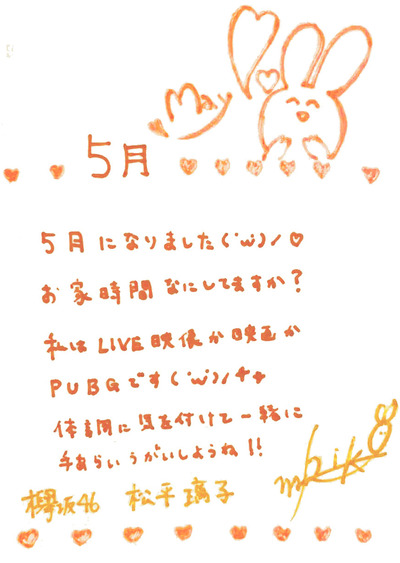 May
5月
5月になりました(˙ω˙)ノ♡
お家時間なにしてますか?
私はLIVE映像か映画か
PUBGです(˙ω˙)ノ✦✦
体調に気を付けて一緒に
手あらいうがいしようね!!
欅坂46 松平璃子